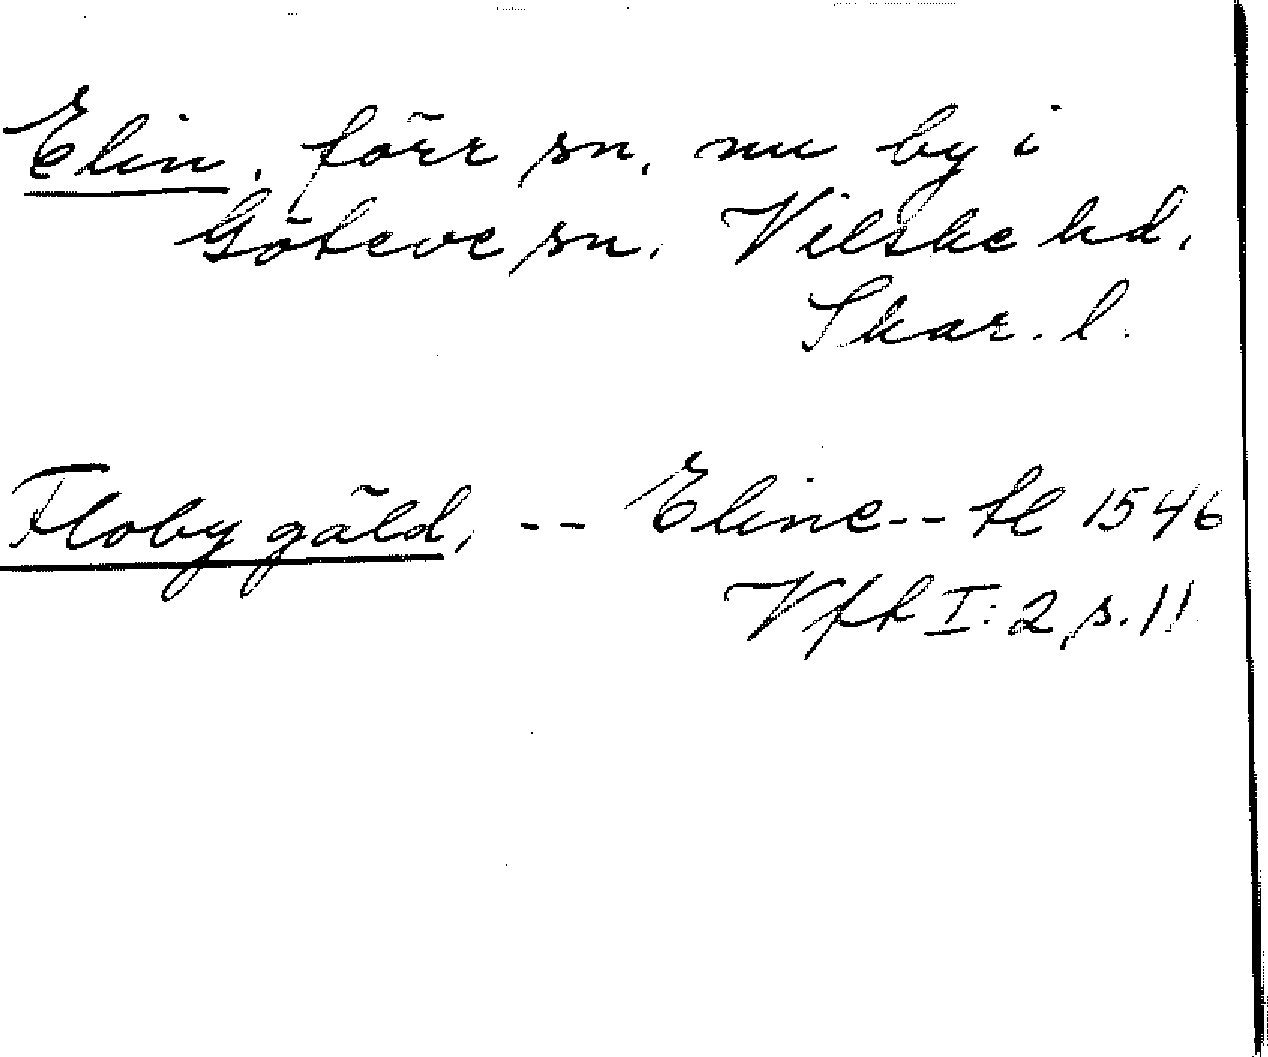 Elin, förr sn, nu by i
Göteve sn, Vilske hd,
Skar. l.
Floby gäld, -- Eline -- tl 1546
Vft I:2, s. 11